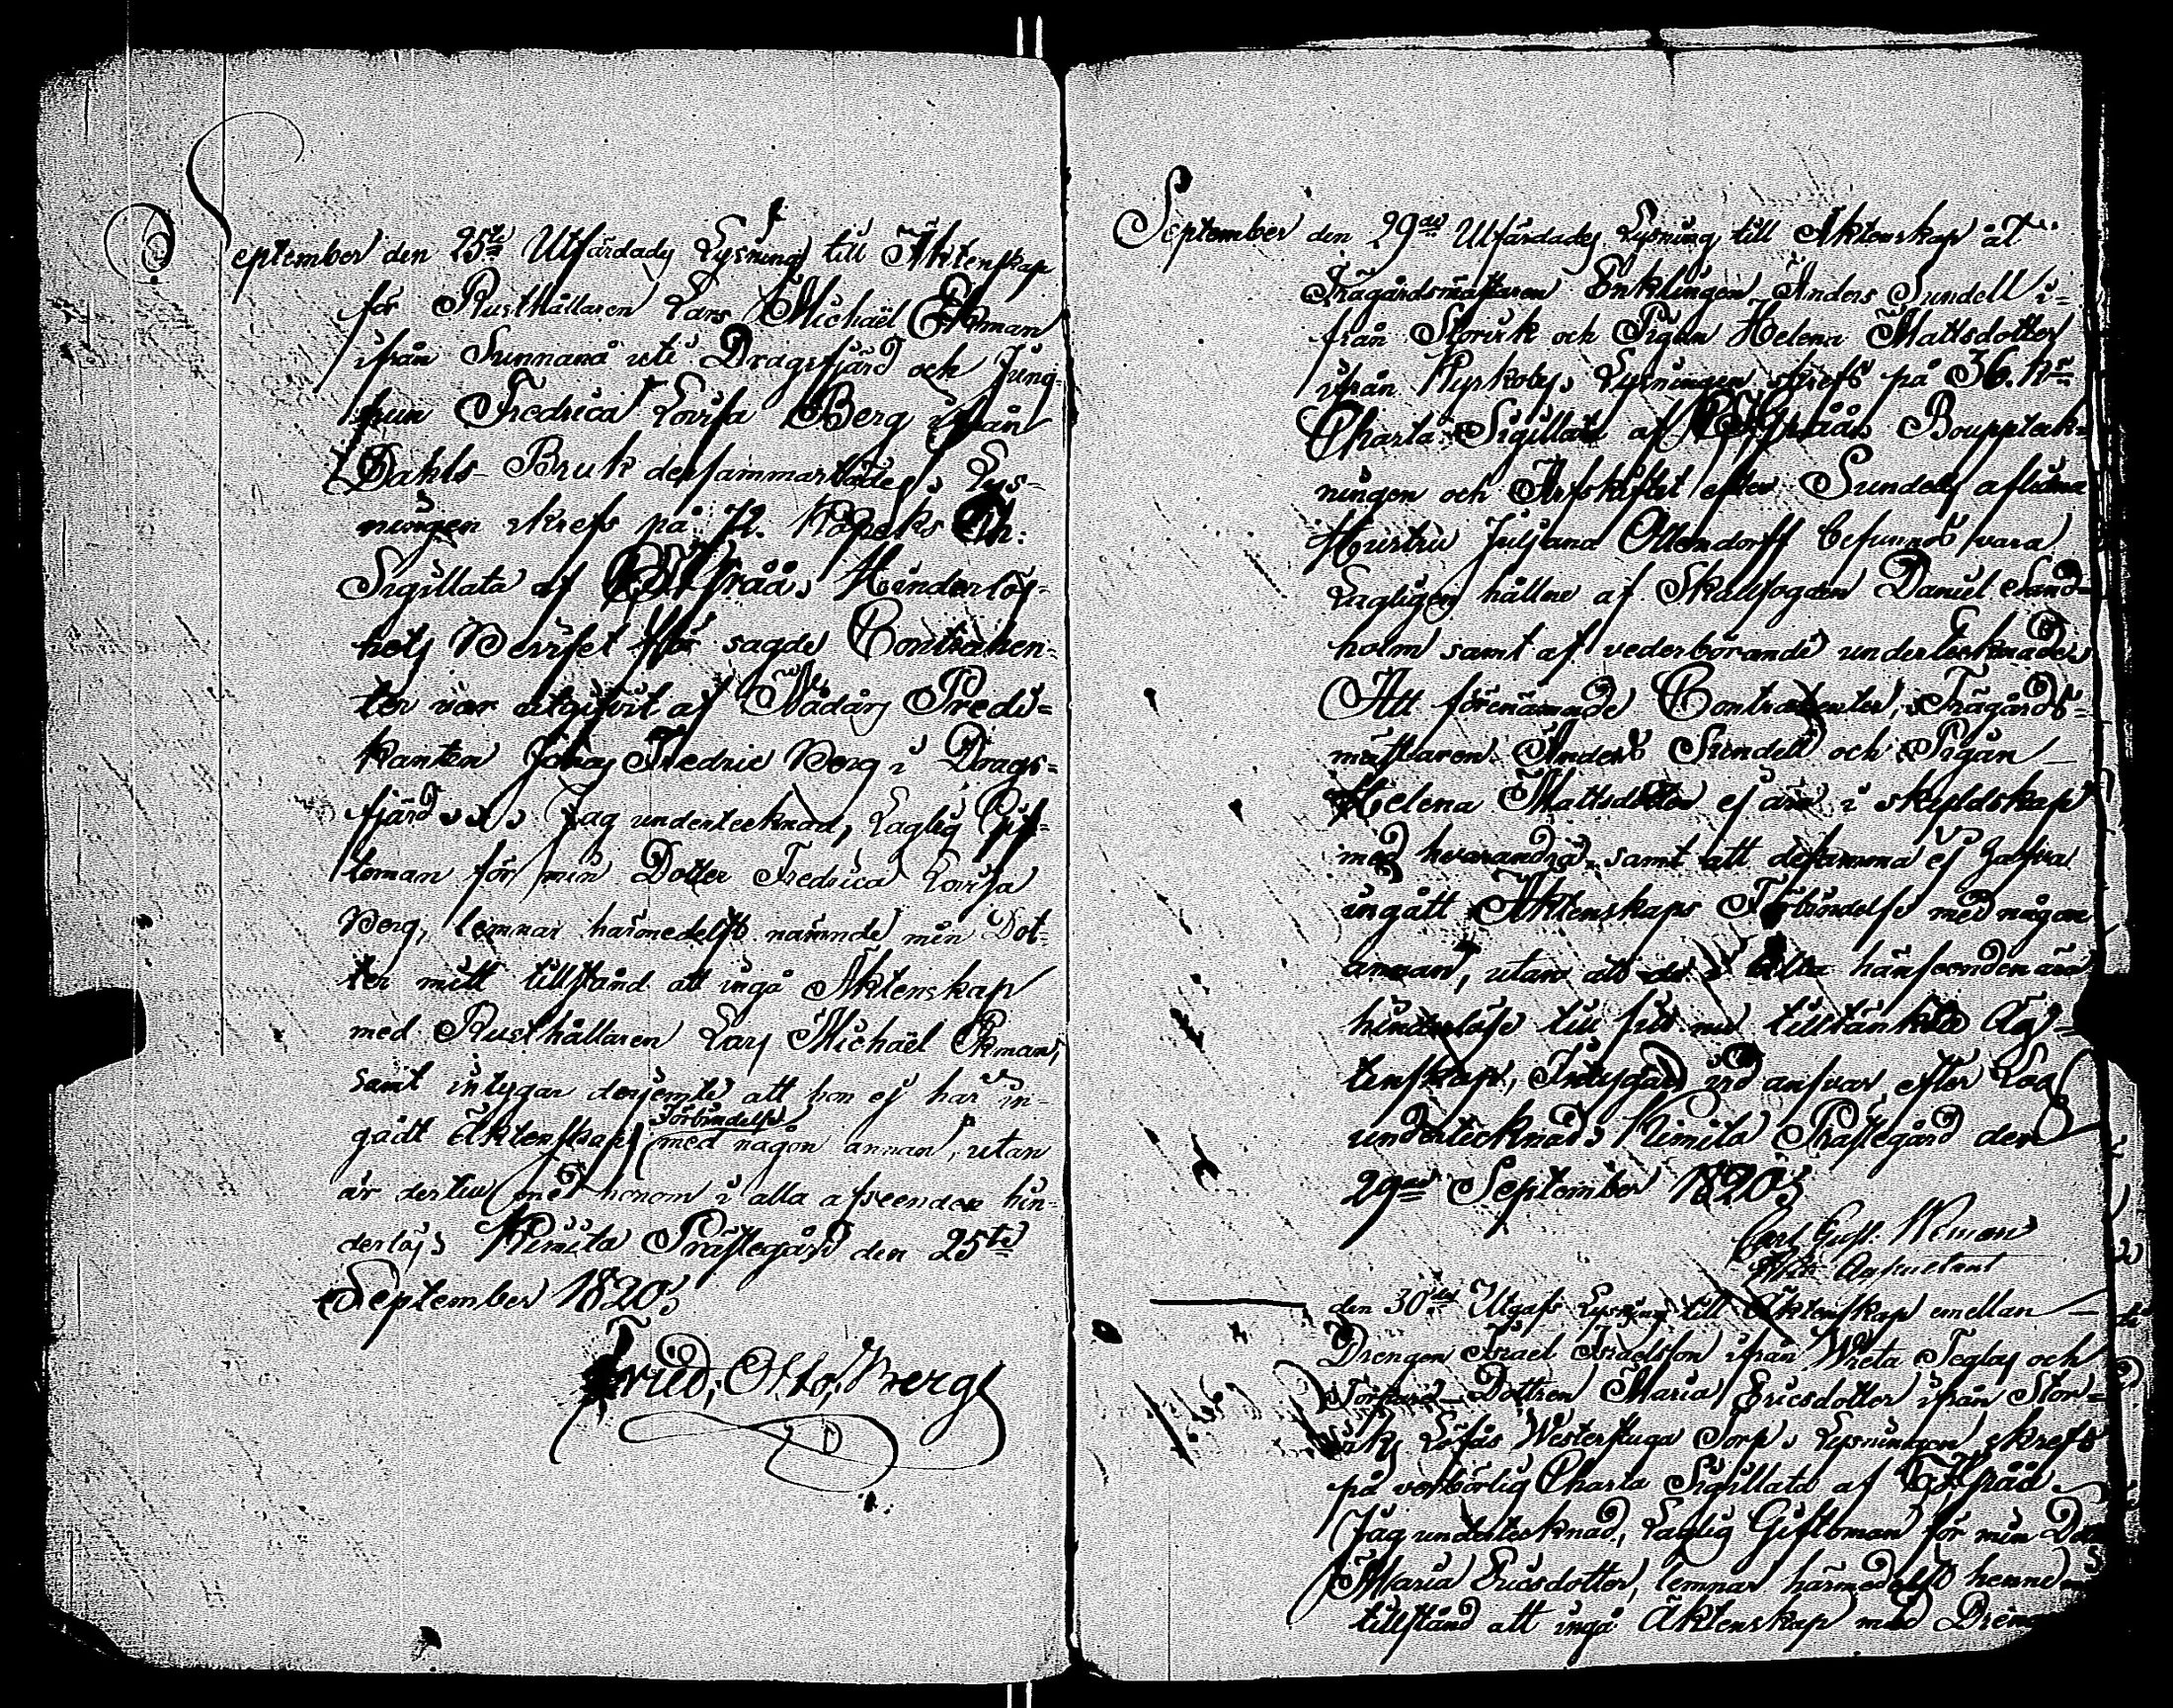 September den 25te Utfärdades Lysning till Äktenskap
för Rusthållaren Lars Michaël Ekman
ifrån Sunnanå uti Dragsfjärd och Jung-
frun Fredrica Lovisa Berg ifrån
Dahls Bruk dersammastädes
Lys-
ningen skrefs på 72. Kopeks Ch:
Sigillata af Hinderlös-
hets Beviset för sagde Contrahen-
ter var utgifvit af Vådårs Predi-
kanten Johan Fredric Berg i Drags-
fjärd
Jag undertecknad, Laglig Gif-
toman för min Dotter Fredrica Lovisa
Berg, lemnar härmedelst nämnde min Dot-
ter mitt tillstånd att ingå Äktenskap
med Rusthållaren Lars Michaël Ekman,
samt intygar derjemte att hon ej har in-
gådt Äktenskaps Förbindelse med någon annan, utan
är dertill med honom i alla afseenden hin-
derlös Kimito Prästegård den 25te
September 1820.
Fried. Otto Berg
September den 29de Utfärdades Lysning till Äktenskap åt
Trägårdsmästaren Enklingen Anders Sundell i-
från Storvik och Pigan Helena Mattsdotter
ifrån Kyrkoby, Lysningen skrefs på 36.
Charta Sigillata af Bouppteck-
ningen och Arfskiftet efter Sundells aflidna
Hustru Juliana Ottendorff befunnos vara
Lagligen hållne af Skallfogden Daniel Sand-
holm samt af vederbörande undertecknade
Att förenämnde Contrahenter, Trägårds-
mästaren Anders Sundell och Pigan
Helena Mattsdotter ej äro i skyldskap
med hvarandra, samt att desamma ej hafva
ingått Äktenskaps Förbindelse med någon
annan, utan att de i alla hänseenden äro
hinderlöse till sitt nu tilltänkte Äg-
tenskap, Intygar vid ansvar efter Lag
undertecknad, Kimito Prästegård den
29de September 1820
Carl Gust. Neman
den 30de Utgafs Lysning till Äktenskap emellan
Drengen Israel Israelsson ifrån Wreta Teglas och
Torpare Dottren Maria Ericsdotter ifrån Stor-
Löfås Westerstuga Torp, Lysningen skrefs
på vederbörlig Charta Sigillata af
Jag undertecknad, Laglig Giftoman för min
Maria Ericsdotter, lemnar härmedelst henne
tillstånd att ingå Äktenskap med